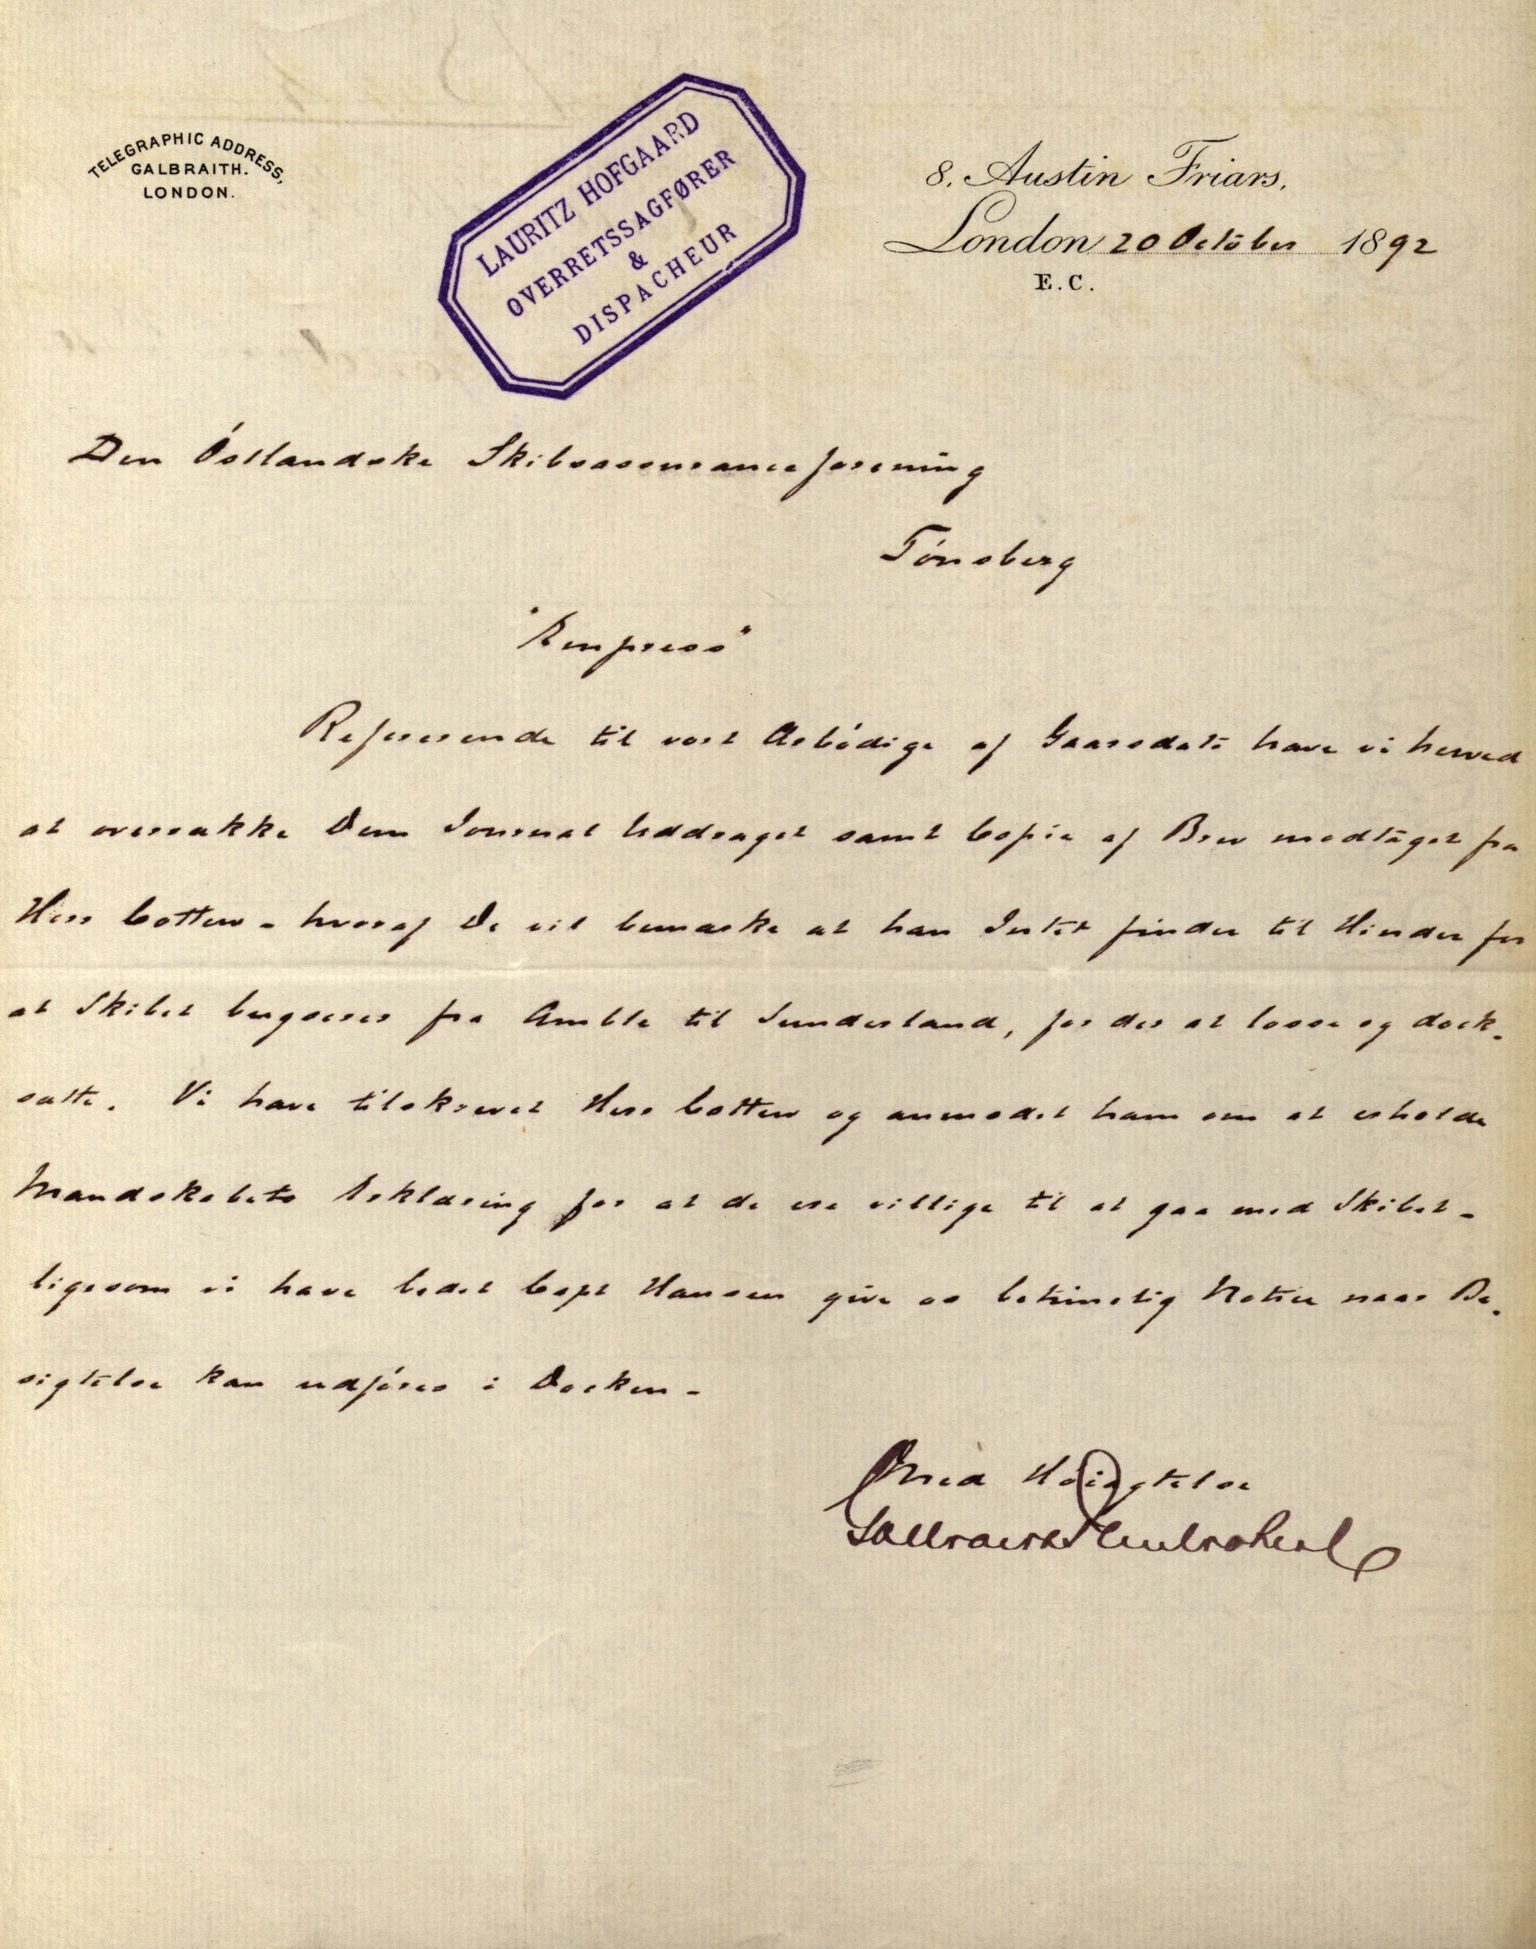 TELEGRAPHIC ADDRESS,
GALBRAITH.
LONDON.
LAURITZ HOFGAARD
OVERRETSSAGFØRER
&
DISPACHEUR
8, Austin Friars,
London 20 October 1892
E.C.
Den Östlandske Skibsassuranceforening
Tönsberg
"Empress"
Refererende til vort Ærbödige af Gaarsdato have vi herved
at overrække Dem Journal Uddraget samt Copie af Brev modtaget fra
Herr Cotten - hvoraf De vil bemærke at han Intet finder til Hinder for
at Skibet bugseres fra Amble til Sunderland, for der at losse og dock-
sætte. Vi have tilskrevet Herr Cotten og anmodet ham om at erholde
Mandskabets Erklæring for at de ere villige til at gaa med Skibet -
ligesom vi have bedet Capt Hansen give os betimelig Notice naar Be-
sigtelse kan udföres i Docken -
Med Höiagtelse
Galbraith Pembroke